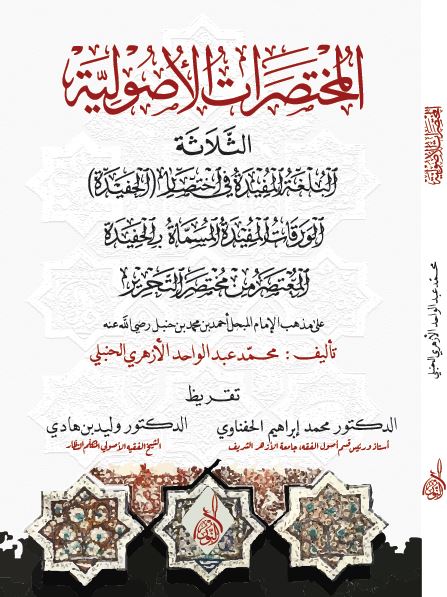 المختصرات الأصولية
الثلاثة
البلغة المفيدة في اختصار (الحفيدة)
الورقات المفيدة المسماة بالحفيدة
المعتصر من مختصر التحرير
على مذهب الإمام المبجل أحمد بن محمد بن حنبل رضي الله عنه
تأليف : محمد عبد الواحد الأزهري الحنبلي
تقريظ
الدكتور محمد إبراهيم الحفناوي
أستاذ ورئيس قسم أصول الفقه، جامعة الأزهر الشريف
الدكتور وليد بن هادي
الشيخ الفقيه الأصولي المتكلم النظار
المختصرات الأصولية
محمد عبد الواحد الأزهري الحنبلي